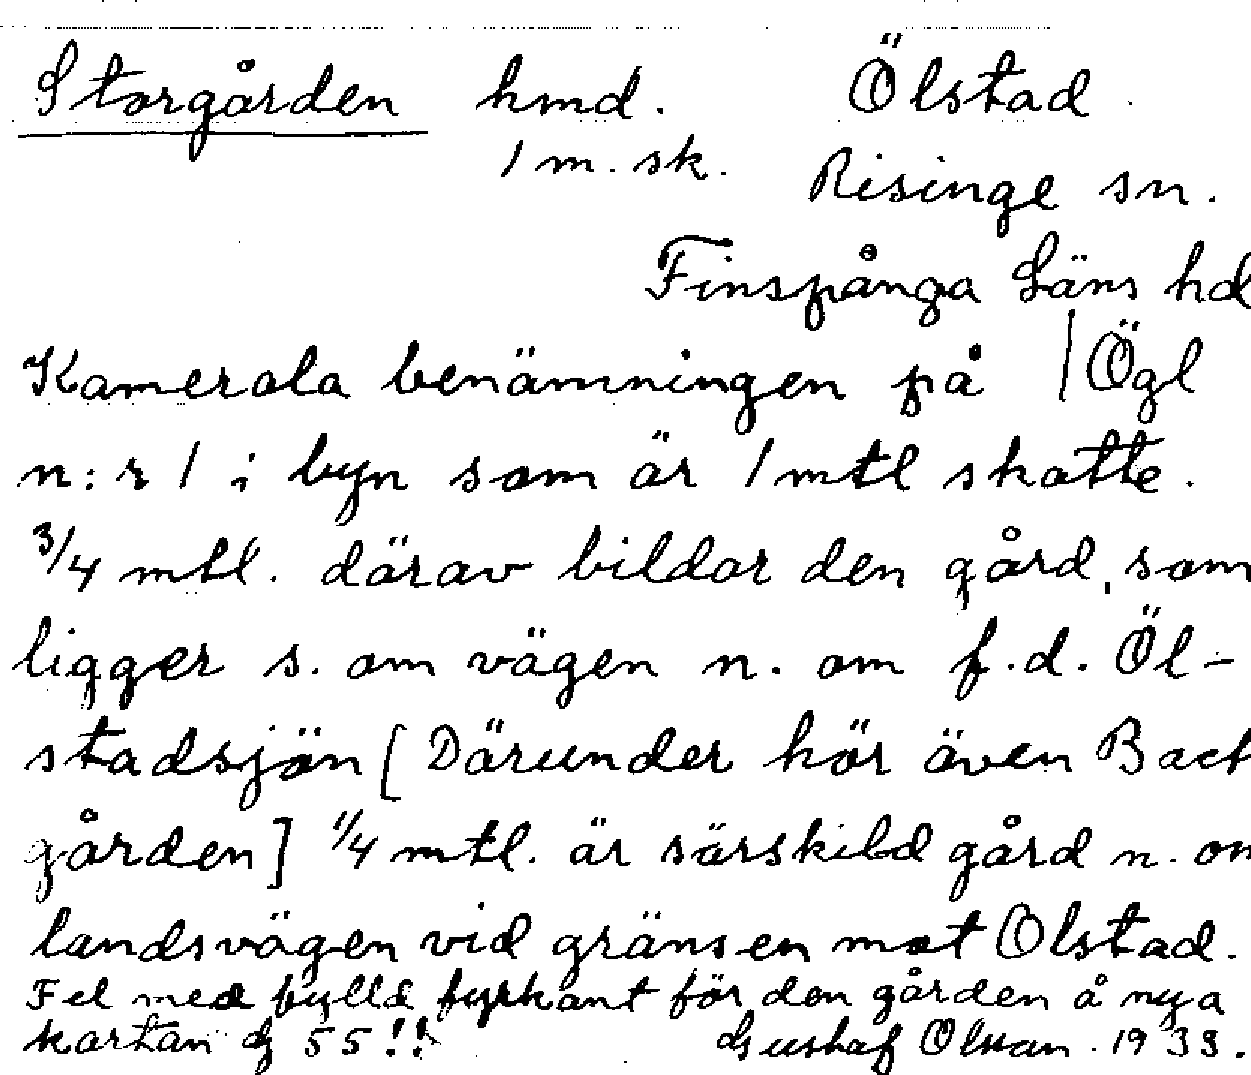 Storgården hmd. Ölstad.
1 m. sk. Risinge sn.
Finspånga Läns hd
Kamerala benämningen på | Ögl
n:r 1 i byn som är 1 mtl skatte.
3/4 mtl. därav bildar den gård, som
ligger s. om vägen n. om f.d. Öl-
stadsjön [Därunder hör även Back
gården] 1/4 mtl. är särskild gård n. om
landsvägen vid gränsen mot Olstad.
Fel med fylld fyrkant för den gården å nya
kartan 55!! Gustaf Olsson. 1938.